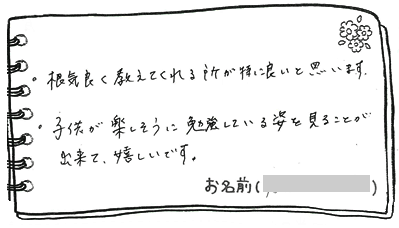 ・根気良く教えてくれる所が特に良いと思います。
・子供が楽しそうに勉強している姿を見ることが
出来て、嬉しいです。
お名前( )